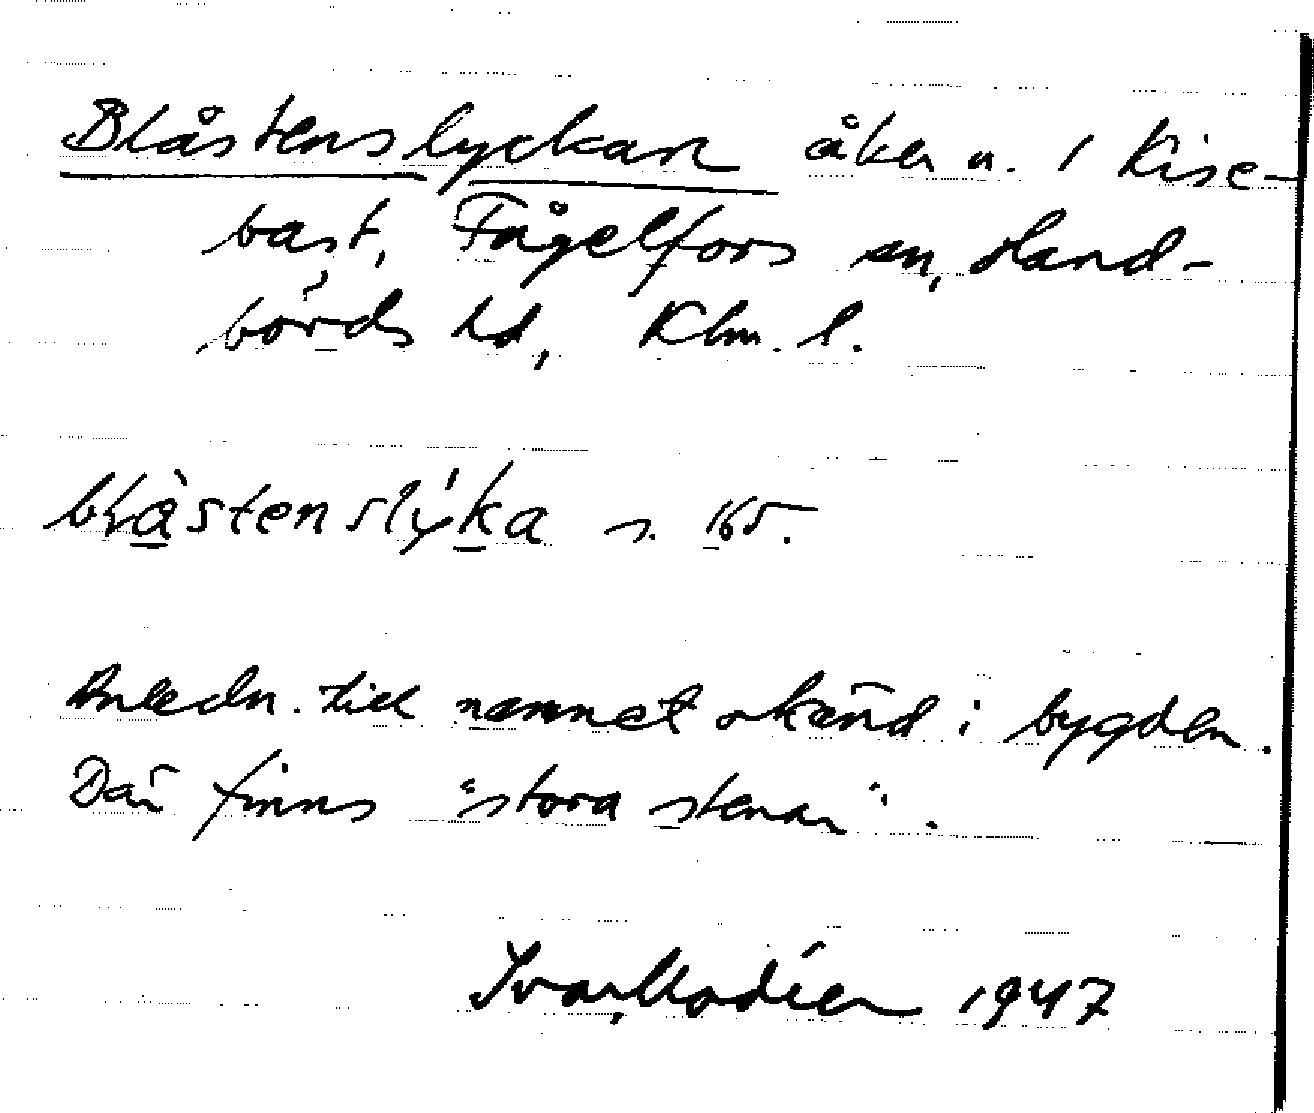 Blåstenslyckan åker n. 1 Kise-
bast, Fågelfors sn, Hand-
börds hd, Klm. l.
blåstenslýka s. 165.
Anledn. till namnet okänd i bygden.
Där finns "stora stenar".
Ivar Modéer 1947